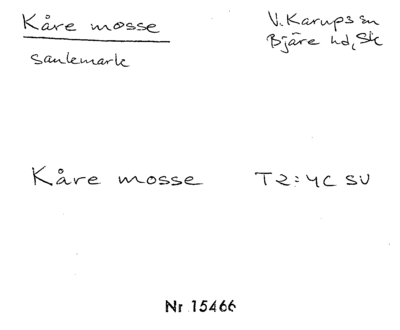 Kåre mosse
V. Karups sn
Bjäre hd, Sk
sankmark
Kåre mosse T2:4C SV
Nr 15466